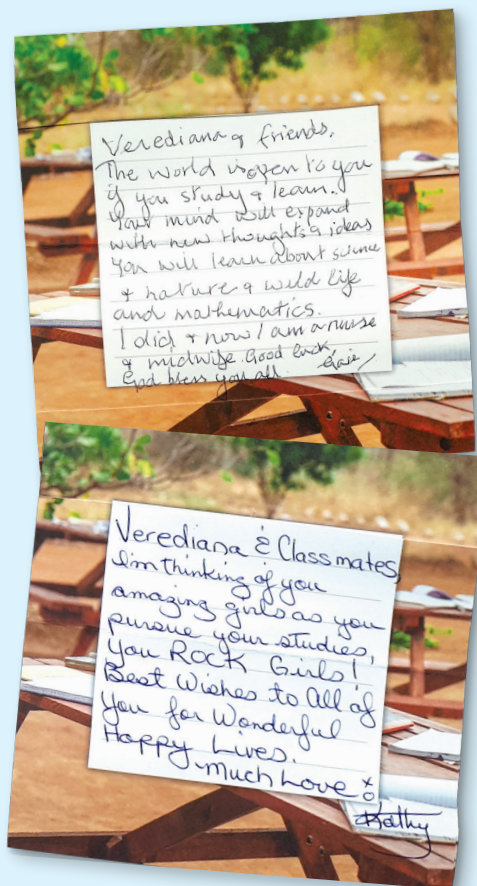 Verediana & friends.
The world is open to you
if you study & learn.
Your mind will expand
with new thoughts & ideas
You will learn about science
& nature & wild life
and mathematics.
I did & now I am a nurse
& midwife. Good luck,
God bless you all.
Verediana & Classmates,
I'm thinking of you
amazing girls as you
pursue your studies,
You ROCK Girls!
Best Wishes to All of
You for Wonderful
Happy Lives.
Much Love xo
Kathy